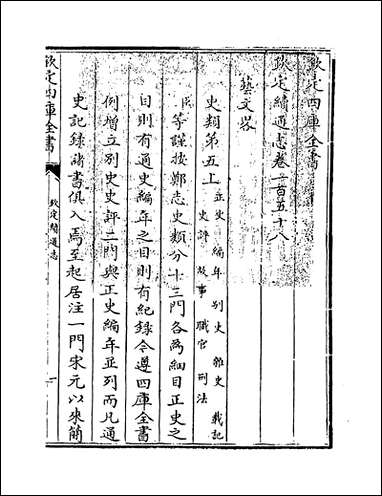 欽定四庫全書
欽定續通志卷一百五十八
藝文畧
史類第五上 正史 編年 別史 雜史 載記
史評 故事 職官 刑法
臣等謹按鄭志史類分十三門各爲細目正史之
目則有通史編年之目則有紀錄今遵四庫全書
例增立別史史評二門與正史編年並列而凡通
史記錄諸書俱入焉至起居注一門宋元以來簡
欽定四庫全書
欽定續通志
一